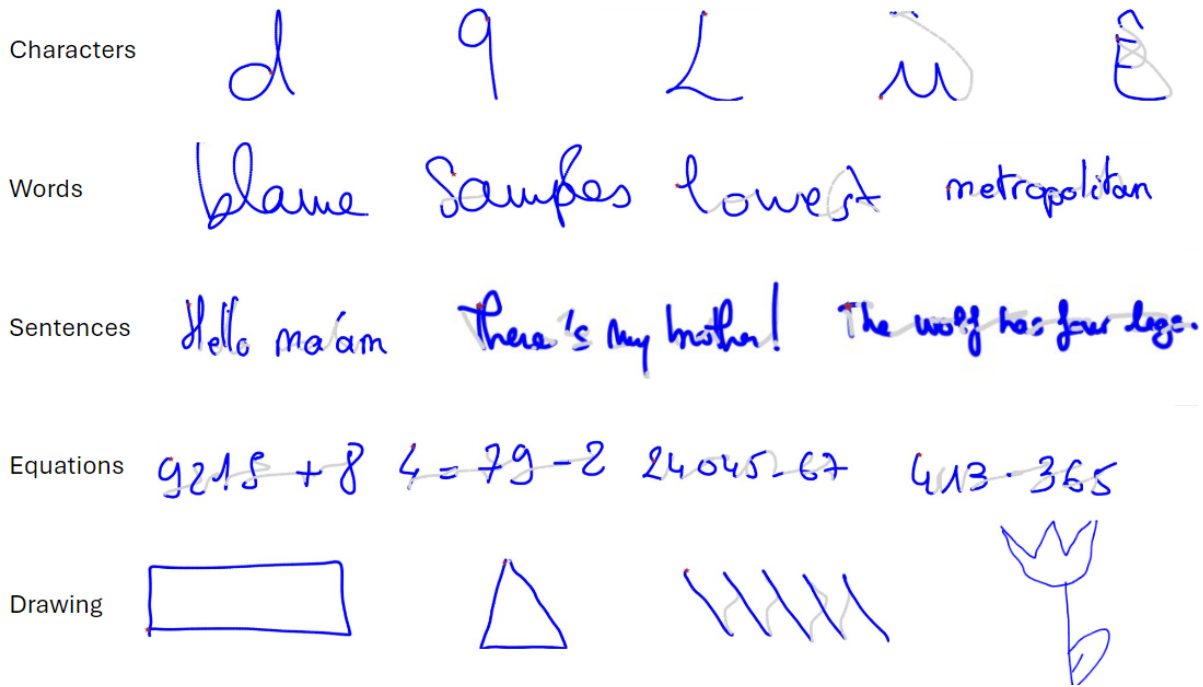 Characters d q L ù Ê
Words blame Samples lowest metropolitan
Sentences Hello ma'am There's my brother! The wolf has four legs.
Equations 9218 + 8 4 = 79 - 2 24045 - 67 413 - 365
Drawing